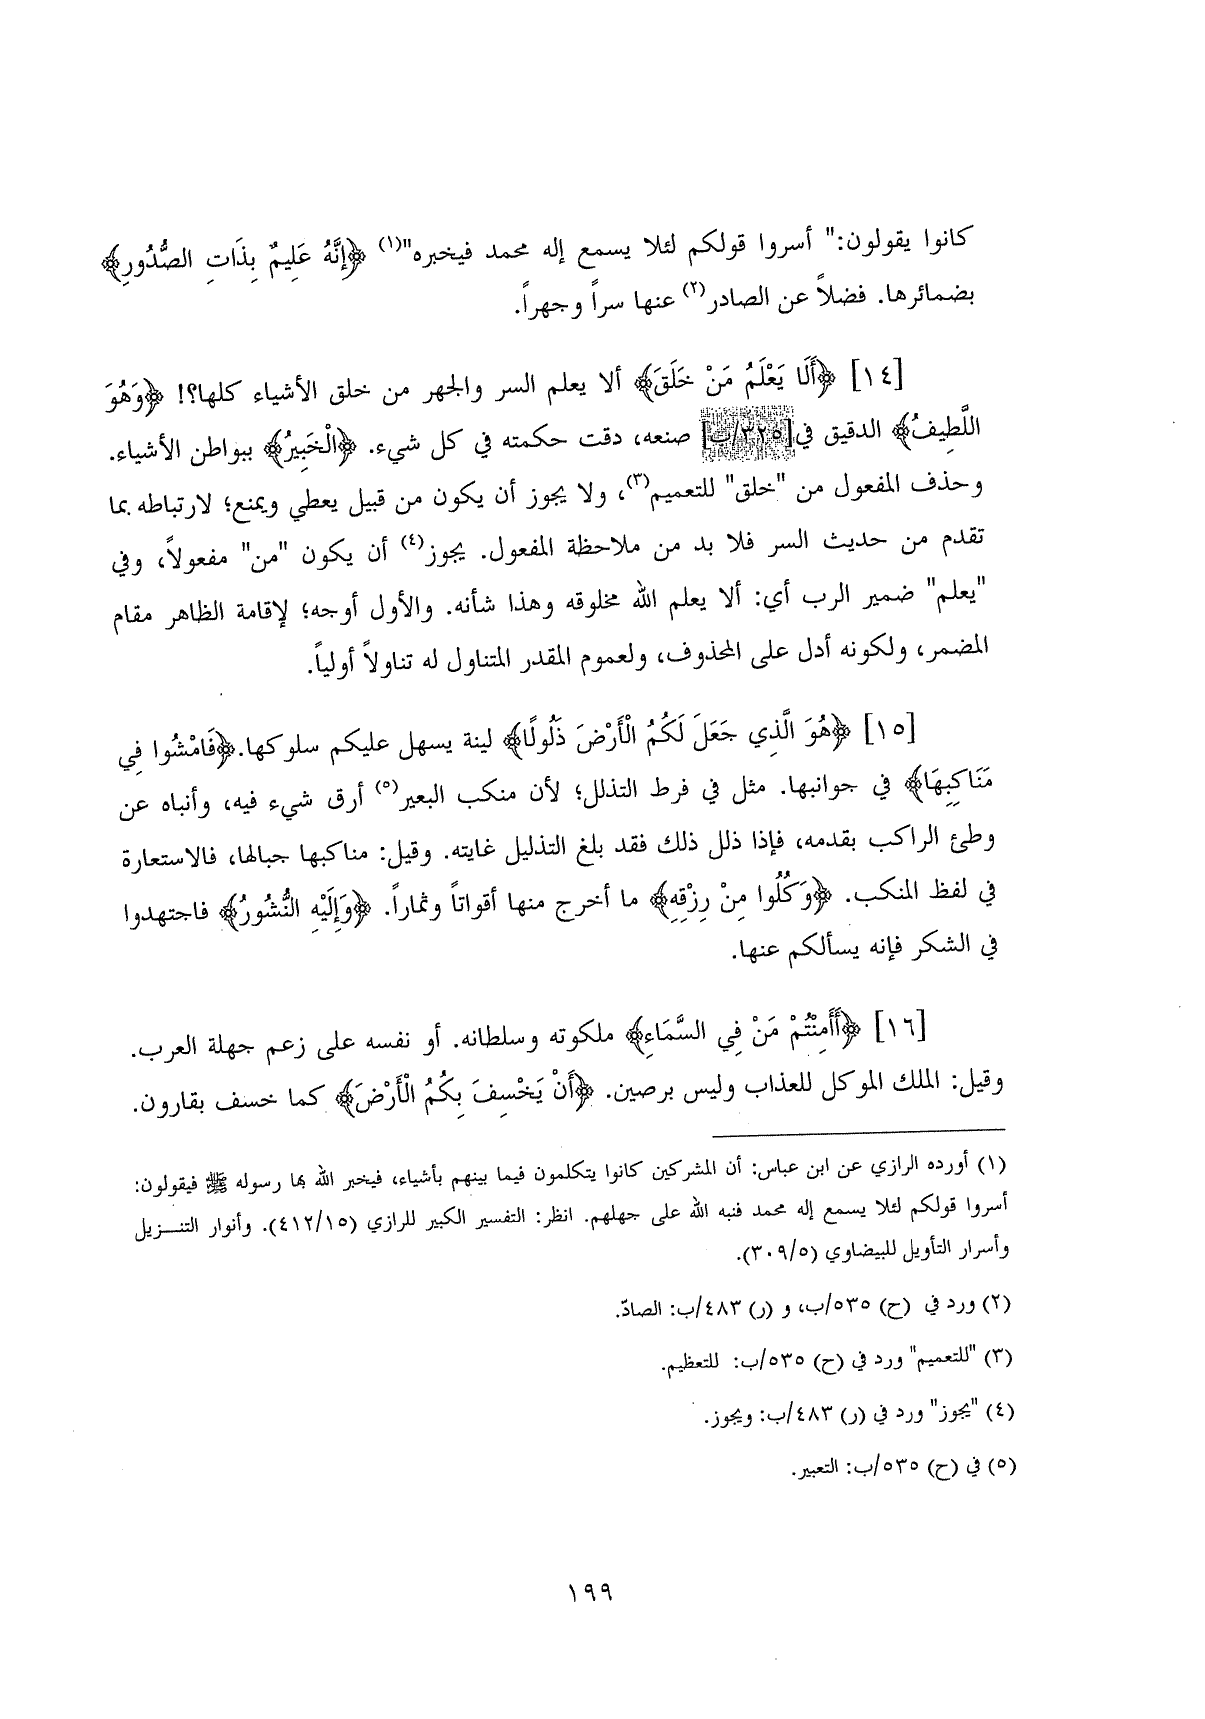 كانوا يقولون:" أسروا قولكم لئلا يسمع إله محمد فيخبره"(١) ﴿إِنَّهُ عَلِيمٌ بِذَاتِ الصُّدُورِ﴾
بضمائرها. فضلاً عن الصادر(٢) عنها سراً وجهراً.
[١٤] ﴿أَلَا يَعْلَمُ مَنْ خَلَقَ﴾ ألا يعلم السر والجهر من خلق الأشياء كلها؟! ﴿وَهُوَ
اللَّطِيفُ﴾ الدقيق في[٣٢٥/ب] صنعه، دقت حكمته في كل شيء. ﴿الْخَبِيرُ﴾ ببواطن الأشياء.
وحذف المفعول من "خلق" للتعميم(٣)، ولا يجوز أن يكون من قبيل يعطي ويمنع؛ لارتباطه بما
تقدم من حديث السر فلا بد من ملاحظة المفعول. يجوز(٤) أن يكون "من" مفعولاً، وفي
"يعلم" ضمير الرب أي: ألا يعلم الله مخلوقه وهذا شأنه. والأول أوجه؛ لإقامة الظاهر مقام
المضمر، ولكونه أدل على المحذوف، ولعموم المقدر المتناول له تناولاً أولياً.
[١٥] ﴿هُوَ الَّذِي جَعَلَ لَكُمُ الْأَرْضَ ذَلُولًا﴾ لينة يسهل عليكم سلوكها.﴿فَامْشُوا فِي
مَنَاكِبِهَا﴾ في جوانبها. مثل في فرط التذلل؛ لأن منكب البعير(٥) أرق شيء فيه، وأنباه عن
وطئ الراكب بقدمه، فإذا ذلل ذلك فقد بلغ التذليل غايته. وقيل: مناكبها جبالها، فالاستعارة
في لفظ المنكب. ﴿وَكُلُوا مِنْ رِزْقِهِ﴾ ما أخرج منها أقواتاً وثماراً. ﴿وَإِلَيْهِ النُّشُورُ﴾ فاجتهدوا
في الشكر فإنه يسألكم عنها.
[١٦] ﴿أَأَمِنْتُمْ مَنْ فِي السَّمَاءِ﴾ ملكوته وسلطانه. أو نفسه على زعم جهلة العرب.
وقيل: الملك الموكل للعذاب وليس برصين. ﴿أَنْ يَخْسِفَ بِكُمُ الْأَرْضَ﴾ كما خسف بقارون.
(١) أورده الرازي عن ابن عباس: أن المشركين كانوا يتكلمون فيما بينهم بأشياء، فيخبر الله بها رسوله ﷺ فيقولون:
أسروا قولكم لئلا يسمع إله محمد فنبه الله على جهلهم. انظر: التفسير الكبير للرازي (٤١٢/١٥). وأنوار التنـــزيل
وأسرار التأويل للبيضاوي (٣٠٩/٥).
(٢) ورد في (ح) ٥٣٥/ب، و (ر) ٤٨٣/ب: الصادّ.
(٣) "للتعميم" ورد في (ح) ٥٣٥/ب: للتعظيم.
(٤) "يجوز" ورد في (ر) ٤٨٣/ب: ويجوز.
(٥) في (ح) ٥٣٥/ب: التعبير.
١٩٩